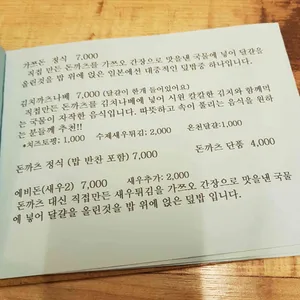 가쯔돈 정식 7,000
직접 만든 돈까츠를 가쯔오 간장으로 맛을낸 국물에 넣어 달걀을
올린것을 밥 위에 얹은 일본에선 대중적인 덮밥중 하나입니다.
김치까츠나베 7,000 (달걀이 한개 들어있어요)
직접만든 돈까츠를 김치나베에 넣어 시원 칼칼한 김치와 함께먹
는 국물이 자작한 음식입니다. 따뜻하고 속이 풀리는 음식을 원하
는 분들께 추천!!
*치즈토핑; 1,000 수제새우튀김; 2,000 온천달걀;1,000
돈까츠 정식 (밥 반찬 포함) 7,000 돈까츠 단품 4,000
에비돈(새우2) 7,000 새우추가; 2,000
돈까츠 대신 직접만든 새우튀김을 가쯔오 간장으로 맛을낸 국물
에 넣어 달걀을 올린것을 밥 위에 얹은 덮밥 입니다.